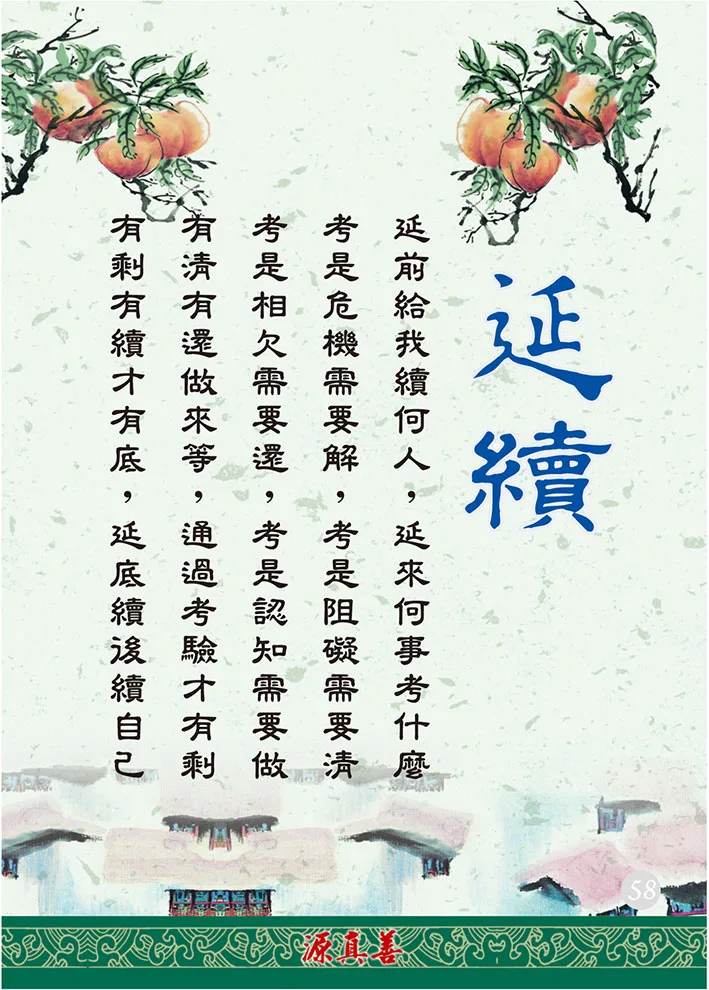 延續
延前給我續何人，延來何事考什麼
考是危機需要解，考是阻礙需要清
考是相欠需要還，考是認知需要做
有清有還做來等，通過考驗才有剩
有剩有續才有底，延底續後續自己
58
源真善